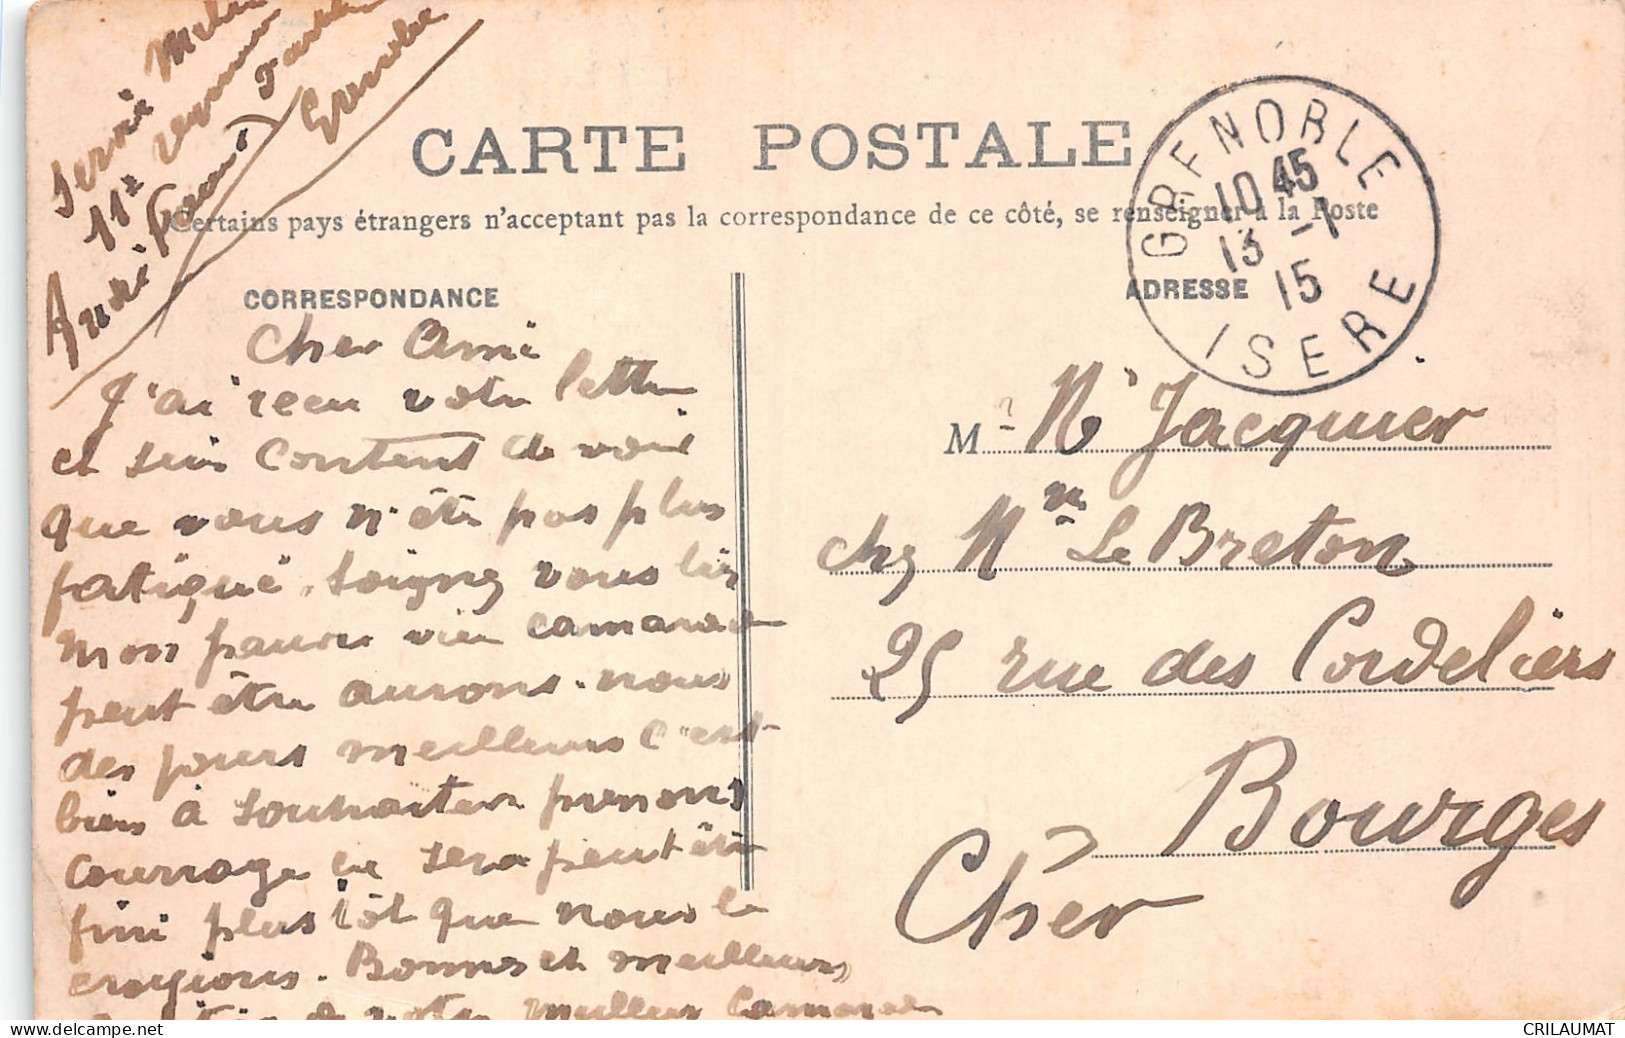 Grenoble
CARTE POSTALE
Certains pays étrangers n'acceptant pas la correspondance de ce côté, se renseigner à la Poste
GRENOBLE
10 45
13 -1
15
ISERE
CORRESPONDANCE
ADRESSE
Cher Ami
J'ai recu votre lettre
et suis content de voir
que vous n'ête pas plus
fatigué. Soignez vous bien
mon pauvre vieu camarade
peut être aurons-nous
des jours meilleurs c'est
bien à souhaiter prenons
courrage ce sera peut être
fini plus tôt que nous le
croyions. Bonnes et meilleurs
de votre meilleur camarade
M. Mr Jacquier
chez Mme Le Breton
25 rue des Cordeliers
Bourges
Cher
CRILAUMAT